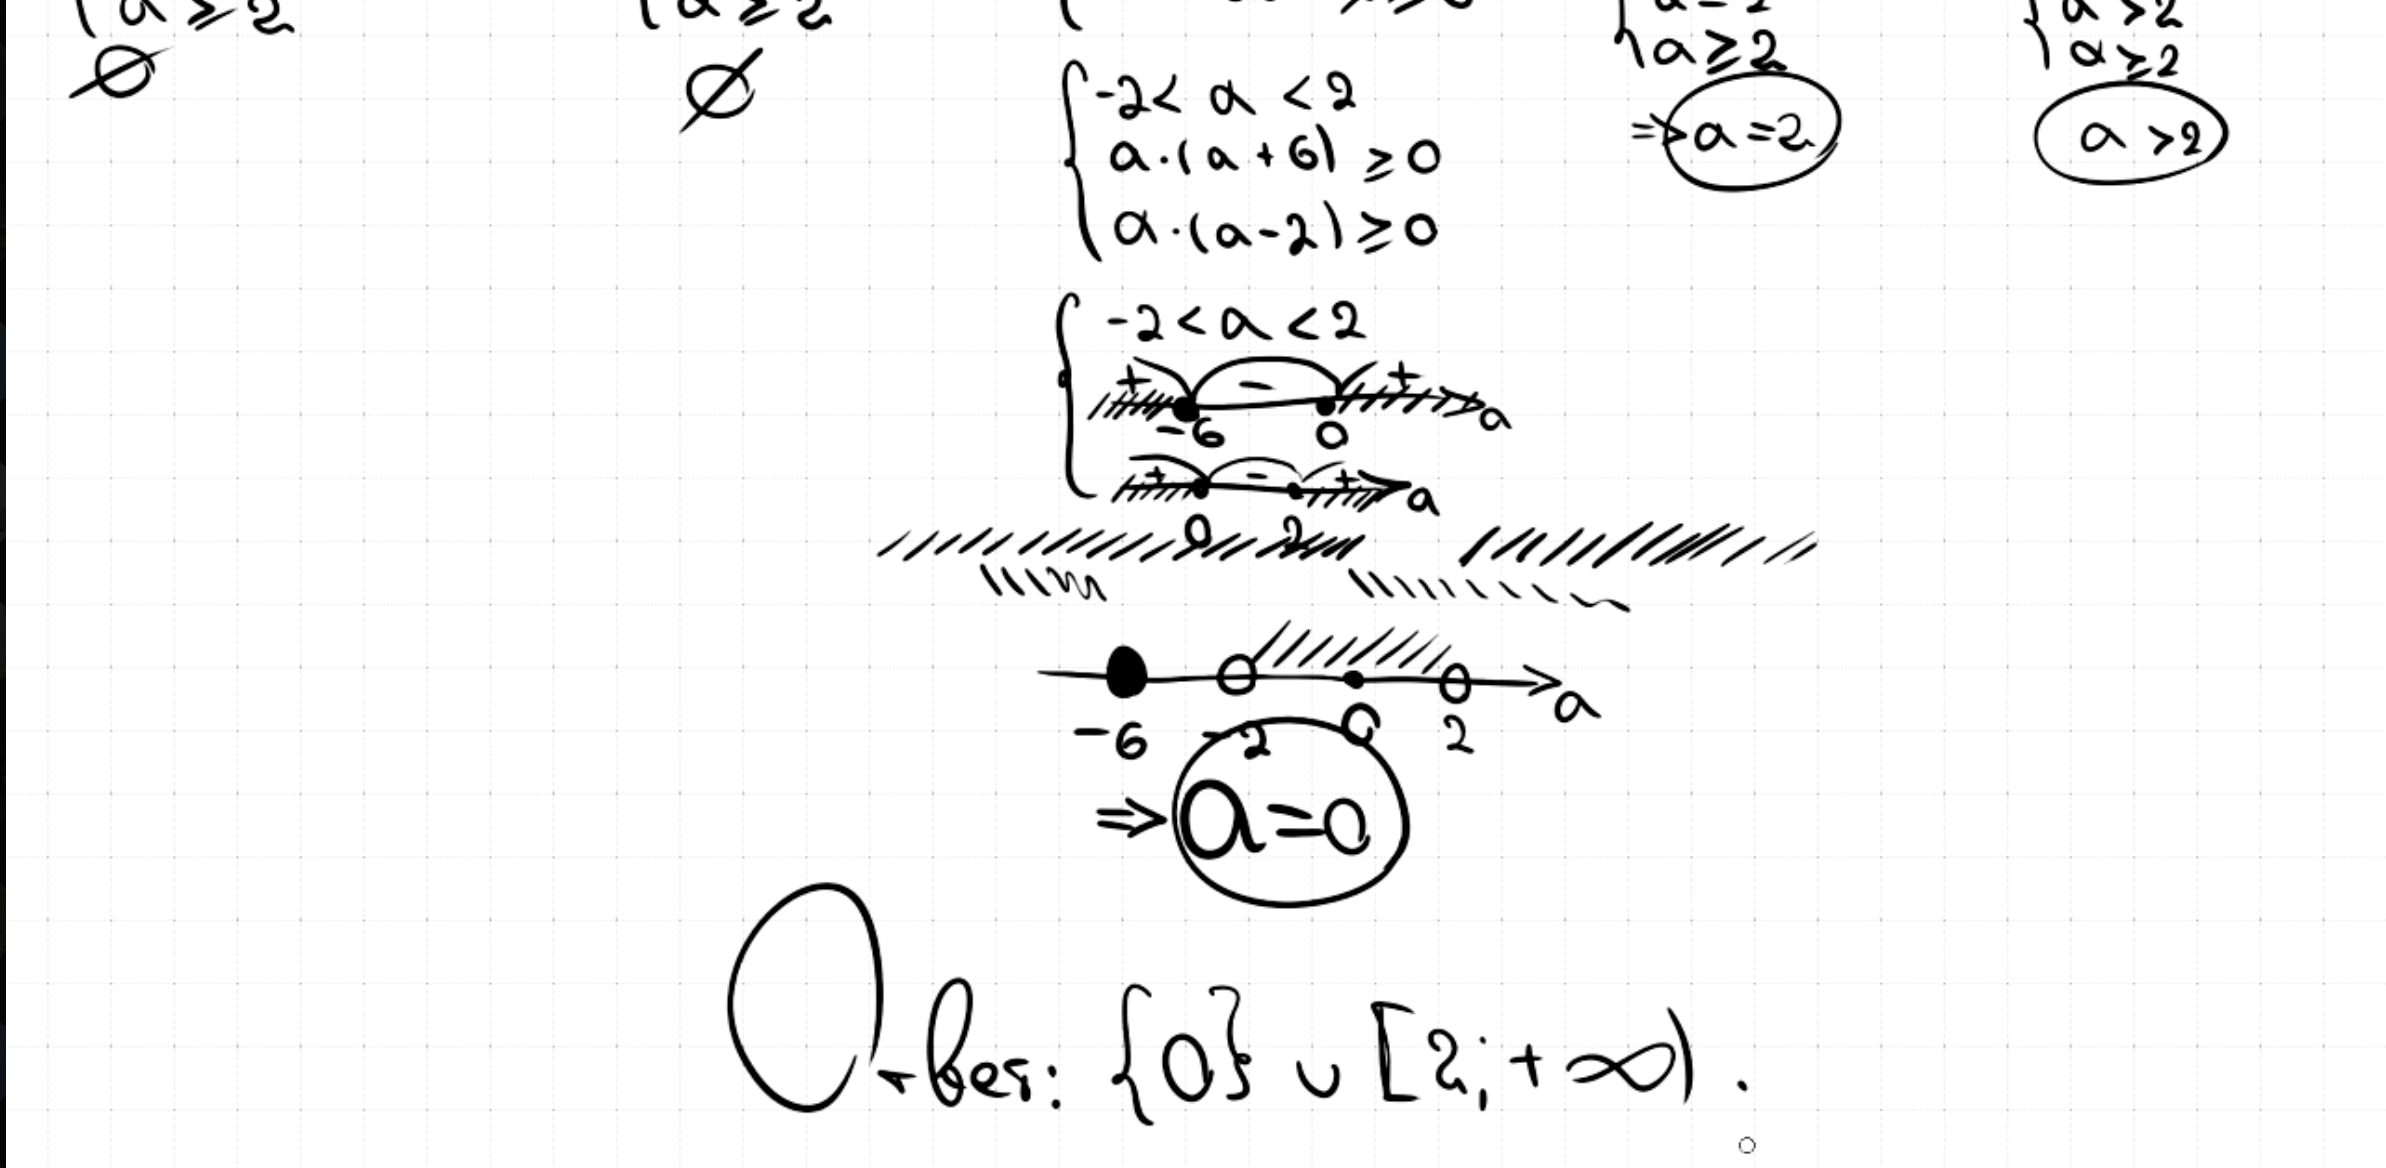 a ≥ 2
∅
a ≥ 2
∅
-2 < a < 2
a·(a+6) ≥ 0
a·(a-2) ≥ 0
-2 < a < 2
+ - + a
-6 0
+ - + a
0 2
a
-6 -2 0 2
⇒ a = 0
a ≥ 2
⇒ a = 2
a > 2
a ≥ 2
a > 2
Ответ: {0} ∪ [2; +∞).